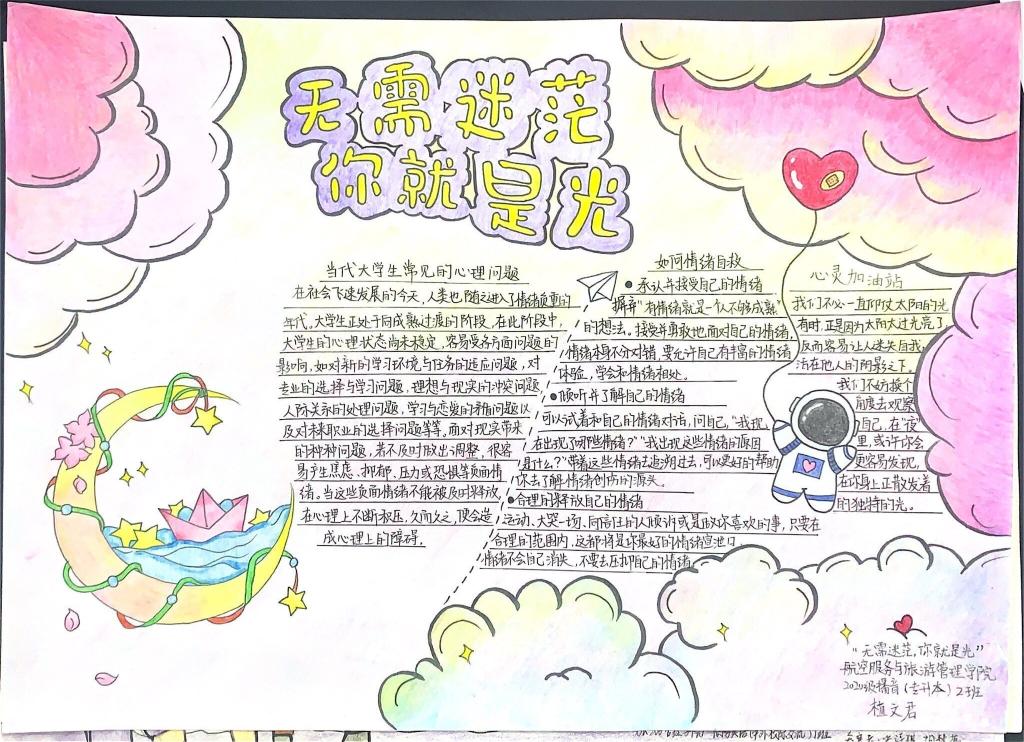 无需迷茫
你就是光
当代大学生常见的心理问题
在社会飞速发展的今天，人类也随之进入了情绪负重的
年代。大学生正处于向成熟过渡的阶段，在此阶段中，
大学生的心理状态尚未稳定，容易受各方面问题的
影响，如对新的学习环境与任务的适应问题，对
专业的选择与学习问题，理想与现实的冲突问题，
人际关系的处理问题，学习与恋爱的矛盾问题以
及对未来职业的选择问题等等。面对现实带来
的种种问题，若不及时做出调整，很容
易产生焦虑、抑郁、压力或恐惧等负面情
绪。当这些负面情绪不能被及时释放，
在心理上不断积压，久而久之，便会造
成心理上的障碍。
如何情绪自救
●承认并接受自己的情绪
摒弃“有情绪就是一个人不够成熟”
的想法。接受并勇敢地面对自己的情绪，
情绪本身不分对错，要允许自己有丰富的情绪
体验，学会和情绪相处。
●倾听并了解自己的情绪
可以试着和自己的情绪对话，问自己，“我现
在出现了哪些情绪？”“我出现这些情绪的源因
是什么？”带着这些情绪去追溯过去，可以更好的帮助
你去了解情绪创伤的源头。
●合理的释放自己的情绪
运动、大哭一场、向信任的人倾诉或是做你喜欢的事，只要在
合理的范围内，这都将是你最好的情绪宣泄口。
情绪不会自己消失，不要去压抑自己的情绪
心灵加油站
我们不必一直仰仗太阳的光
有时，正是因为太阳太过光亮了，
反而容易让人迷失自我，
活在他人的阴影之下。
我们不妨换个
角度去观察
自己，在“夜”
里，或许你会
更容易发现，
在你身上正散发着
的独特的光。
“无需迷茫，你就是光”
航空服务与旅游管理学院
2020级播音（专升本）2班
植文君